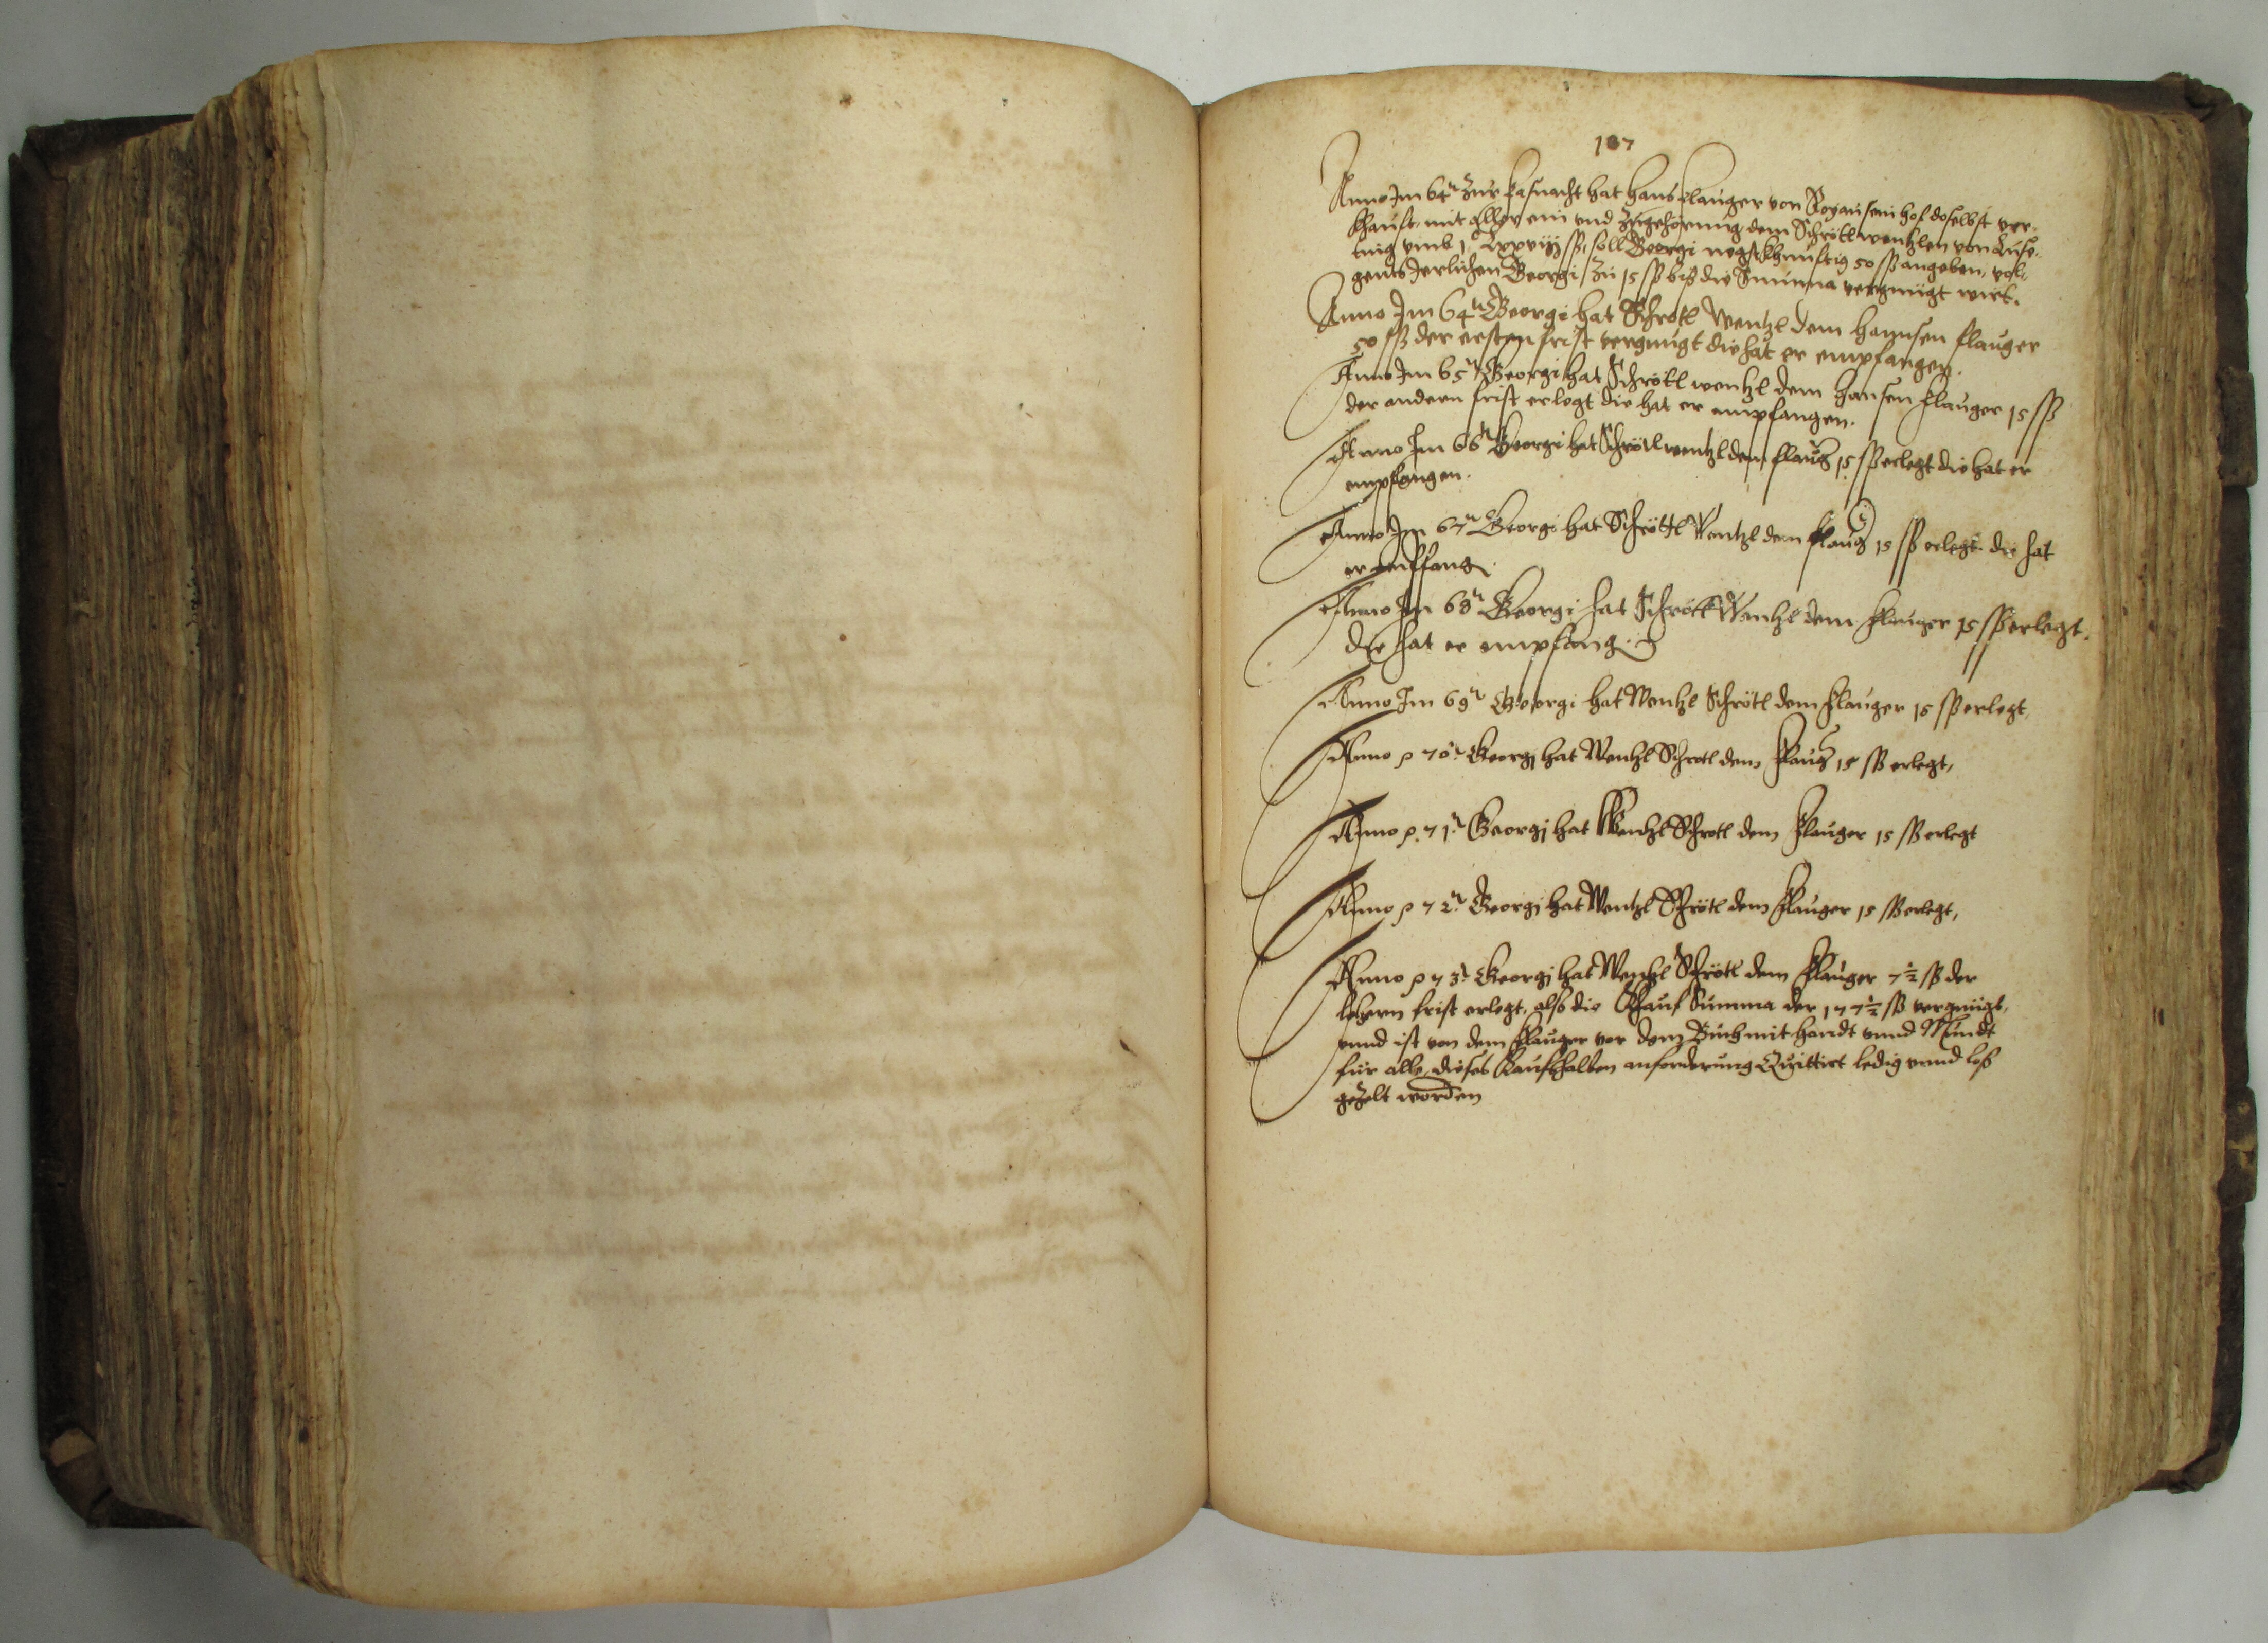 107
Anno Im 64ᵗⁿ zur fasnacht hat hans flauger von hof doselbst ver-
khauft, mit aller ein und zugehörung dem Schrötl wentzlen von
umb 1ᶜ ß, soll Georgi negstkhunftig 50 ß angeben, vol-
gents Jerlichen Georgi zu 15 ß biß die Summa vergnügt wirt.
Anno Im 64ᵗⁿ Georgi hat Schrotl Wentzl dem hannsen flauger
50 ß der ersten frist vergnugt die hat er empfangen.
Anno Im 65ᵗⁿ Georgi hat Schrötl wentzl dem hansen flauger 15 ß
der andern frist erlegt die hat er empfangen.
Anno Im 66ᵗⁿ Georgi hat Schrötl wentzl dem flaug 15 ß erlegt die hat er
empfangen.
Anno Im 67ᵗⁿ Georgi hat Schröttl Wentzl dem flaug 15 ß erlegt. die hat
er empfang.
Anno Im 68ᵗⁿ Georgi hat Schrött Wentzl dem flauger 15 ß erlegt.
die hat er empfang.
Anno Im 69ᵗⁿ Georgi hat Wentzl Schrötl dem flauger 15 ß erlegt.
Anno p 70ᵗⁿ Georgj hat Wentzl Schrotl dem flaug 15 ß erlegt,
Anno p. 71ᵗⁿ Georgj hat Wentzl Schrotl dem flauger 15 ß erlegt
Anno p 72ᵗⁿ Georgj hat Wentzl Schrötl dem flauger 15 ß erlegt,
Anno p 73ᵗ Georgj hat Wentzl Schrötl dem flauger 7½ ß der
letzern frist erlegt, also die Khauf Summa der 177½ ß vergnügt,
unnd ist von dem flauger vor dem Buch mit handt unnd Mundt
für alle dieses Kaufshalben anforderung Quittirt ledig unnd loß
gezelt worden